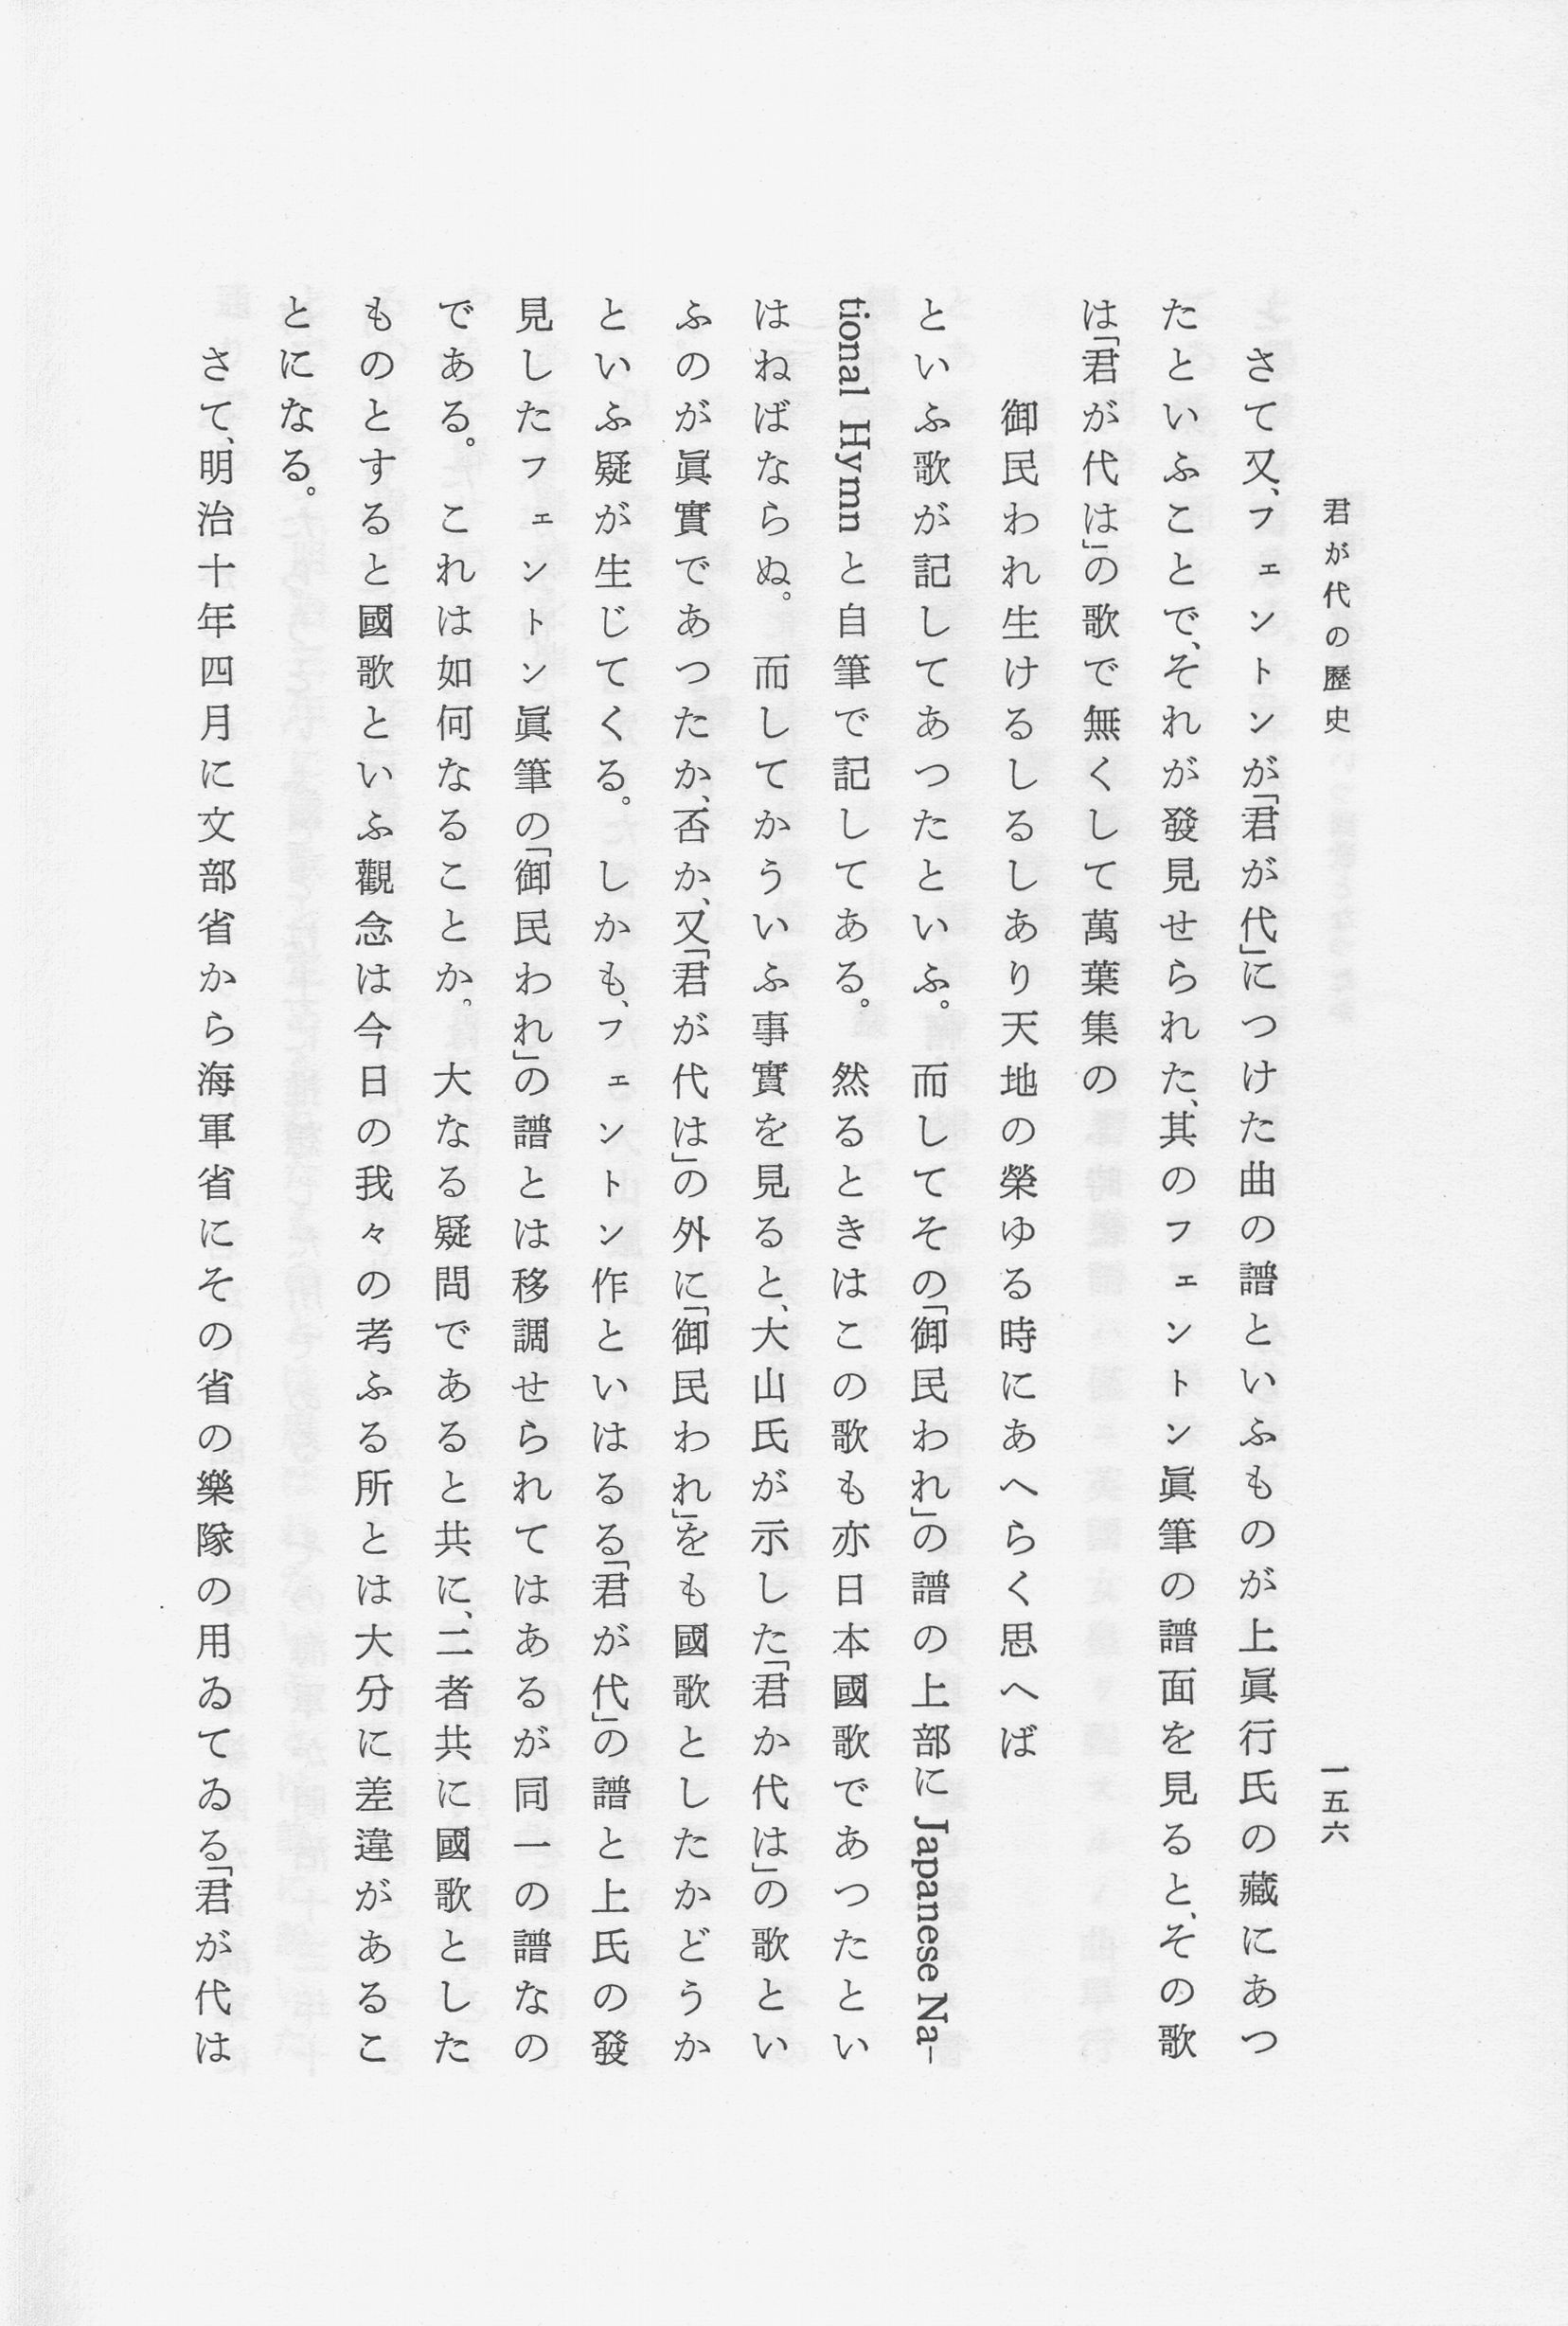 君が代の歴史
一五六
さて又、フェントンが「君が代」につけた曲の譜といふものが上眞行氏の藏にあつ
たといふことで、それが發見せられた、其のフェントン眞筆の譜面を見ると、その歌
は「君が代は」の歌で無くして萬葉集の
御民われ生けるしるしあり天地の榮ゆる時にあへらく思へば
といふ歌が記してあつたといふ。而してその「御民われ」の譜の上部に Japanese Na-
tional Hymn と自筆で記してある。然るときはこの歌も亦日本國歌であつたとい
はねばならぬ。而してかういふ事實を見ると、大山氏が示した「君か代は」の歌とい
ふのが眞實であつたか、否か、又「君が代は」の外に「御民われ」をも國歌としたかどうか
といふ疑が生じてくる。しかも、フェントン作といはるる「君が代」の譜と上氏の發
見したフェントン眞筆の「御民われ」の譜とは移調せられてはあるが同一の譜なの
である。これは如何なることか。大なる疑問であると共に、二者共に國歌とした
ものとすると國歌といふ觀念は今日の我々の考ふる所とは大分に差違があるこ
とになる。
さて、明治十年四月に文部省から海軍省にその省の樂隊の用ゐてゐる「君が代は